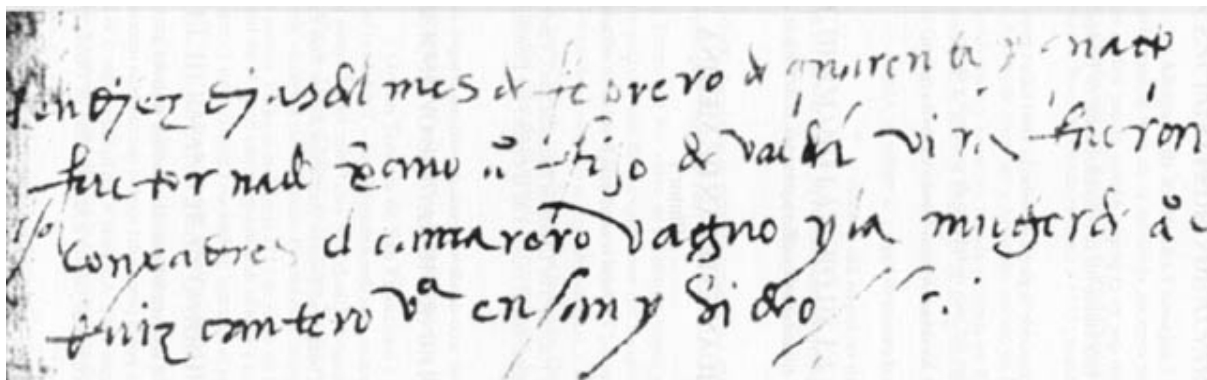 en djez djas del mes de febrero de quarenta y quatro
fue tornad xpmo aº fijo de valdel vira fueron
conpadres el camarero vagno y la muger de aº
Ruiz cantero vª en san ysidro